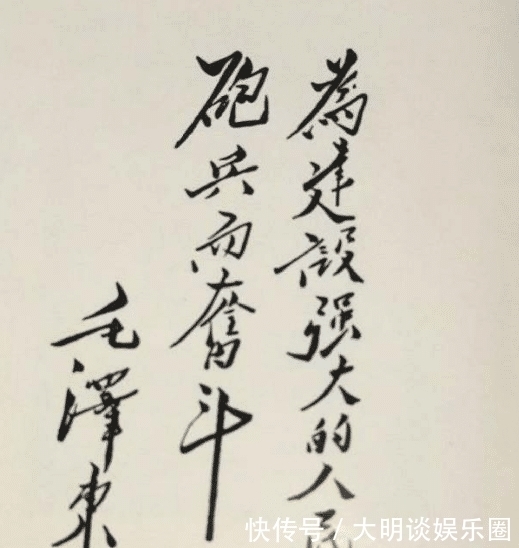 為建設强大的人民
砲兵而奮斗
毛澤東
快传号/大明谈娱乐圈